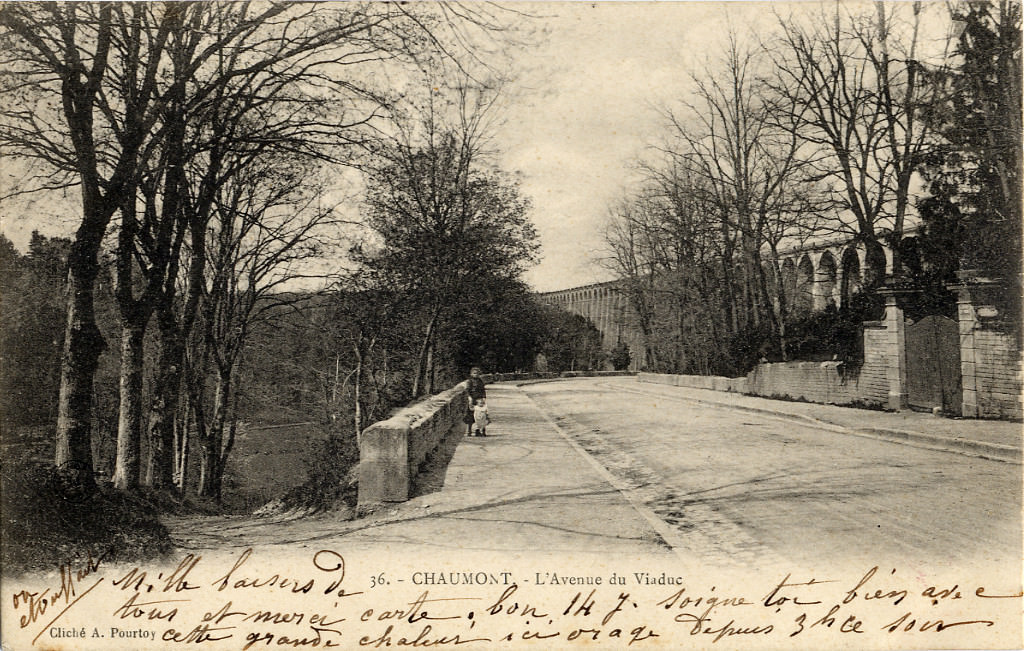 36. - CHAUMONT. - L'Avenue du Viaduc
Mille baisers de
tous et merci carte, bon 14 7. soigne toi bien avec
Cliché A. Pourtoy
cette grande chaleur, ici orage depuis 3h ce soir
on